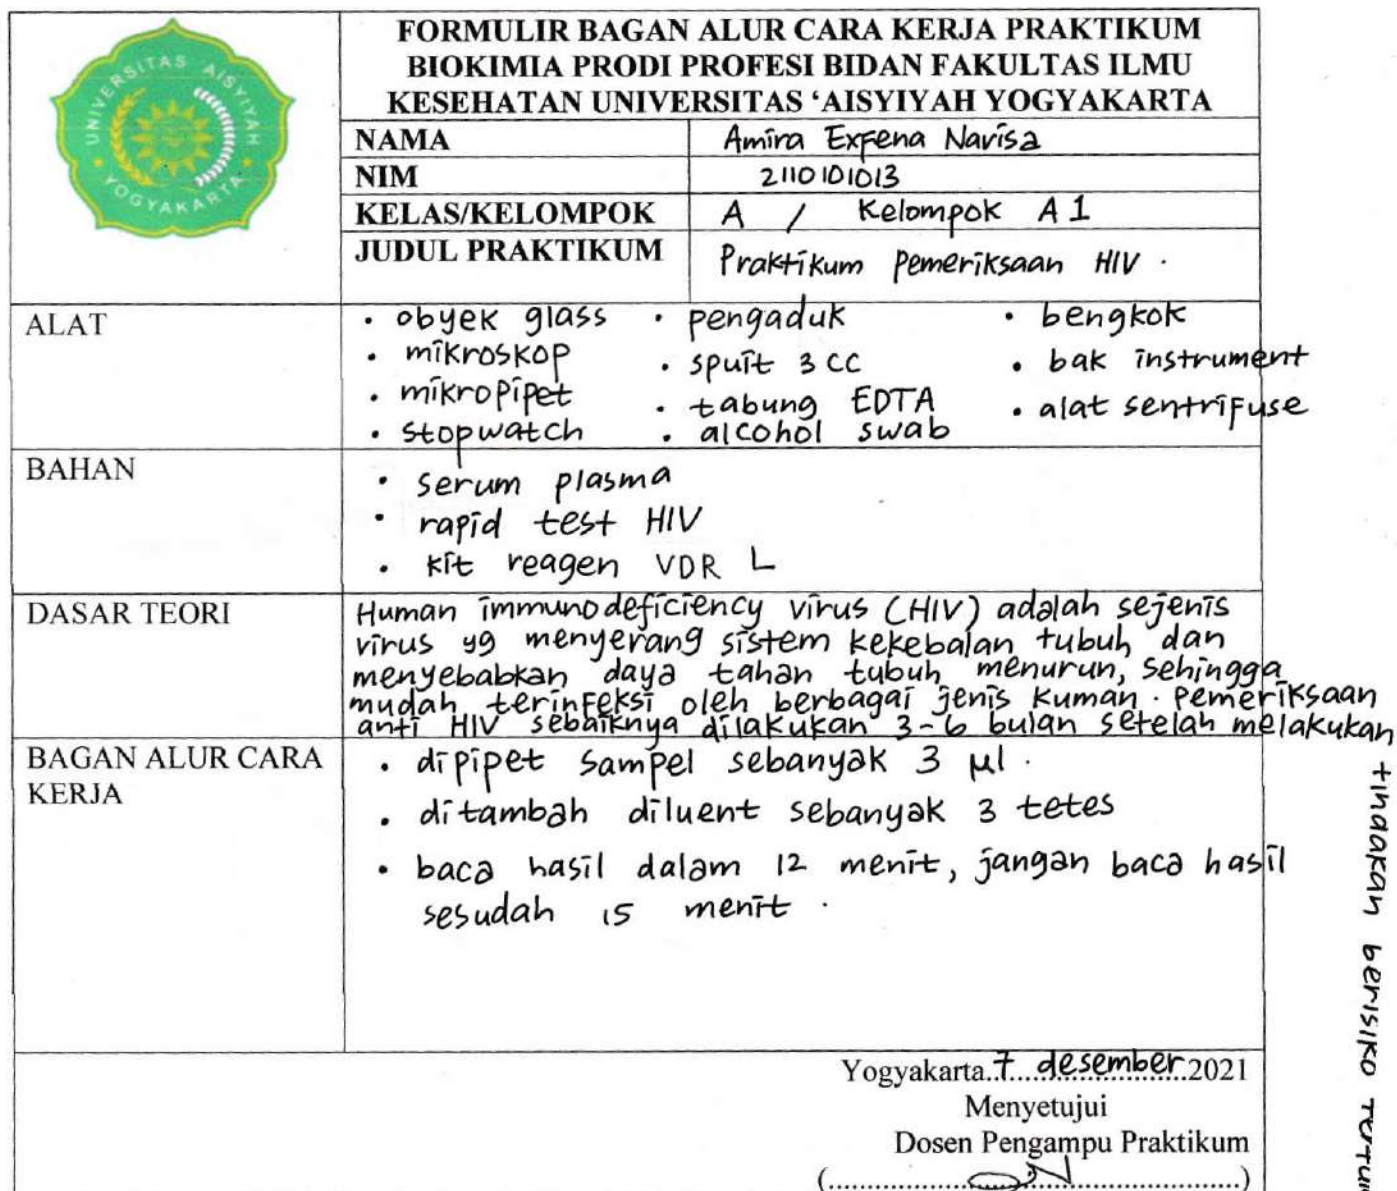 UNIVERSITAS AISYIYAH
YOGYAKARTA
FORMULIR BAGAN ALUR CARA KERJA PRAKTIKUM
BIOKIMIA PRODI PROFESI BIDAN FAKULTAS ILMU
KESEHATAN UNIVERSITAS ‘AISYIYAH YOGYAKARTA
NAMA Amira Exfena Navisa
NIM 2110101013
KELAS/KELOMPOK A / Kelompok A1
JUDUL PRAKTIKUM Praktikum Pemeriksaan HIV.
ALAT
• obyek glass • pengaduk • bengkok
• mikroskop • spuit 3 CC • bak instrument
• mikropipet • tabung EDTA • alat sentrifuse
• stopwatch • alcohol swab
BAHAN
• serum plasma
• rapid test HIV
• kit reagen VDR L
DASAR TEORI
Human immunodeficiency virus (HIV) adalah sejenis
virus yg menyerang sistem kekebalan tubuh dan
menyebabkan daya tahan tubuh menurun, sehingga
mudah terinfeksi oleh berbagai jenis kuman. pemeriksaan
anti HIV sebaiknya dilakukan 3-6 bulan setelah melakukan
tindakan berisiko
BAGAN ALUR CARA
KERJA
• dipipet sampel sebanyak 3 µl.
• ditambah diluent sebanyak 3 tetes
• baca hasil dalam 12 menit, jangan baca hasil
sesudah 15 menit.
Yogyakarta..7 desember 2021
Menyetujui
Dosen Pengampu Praktikum
(........................................)